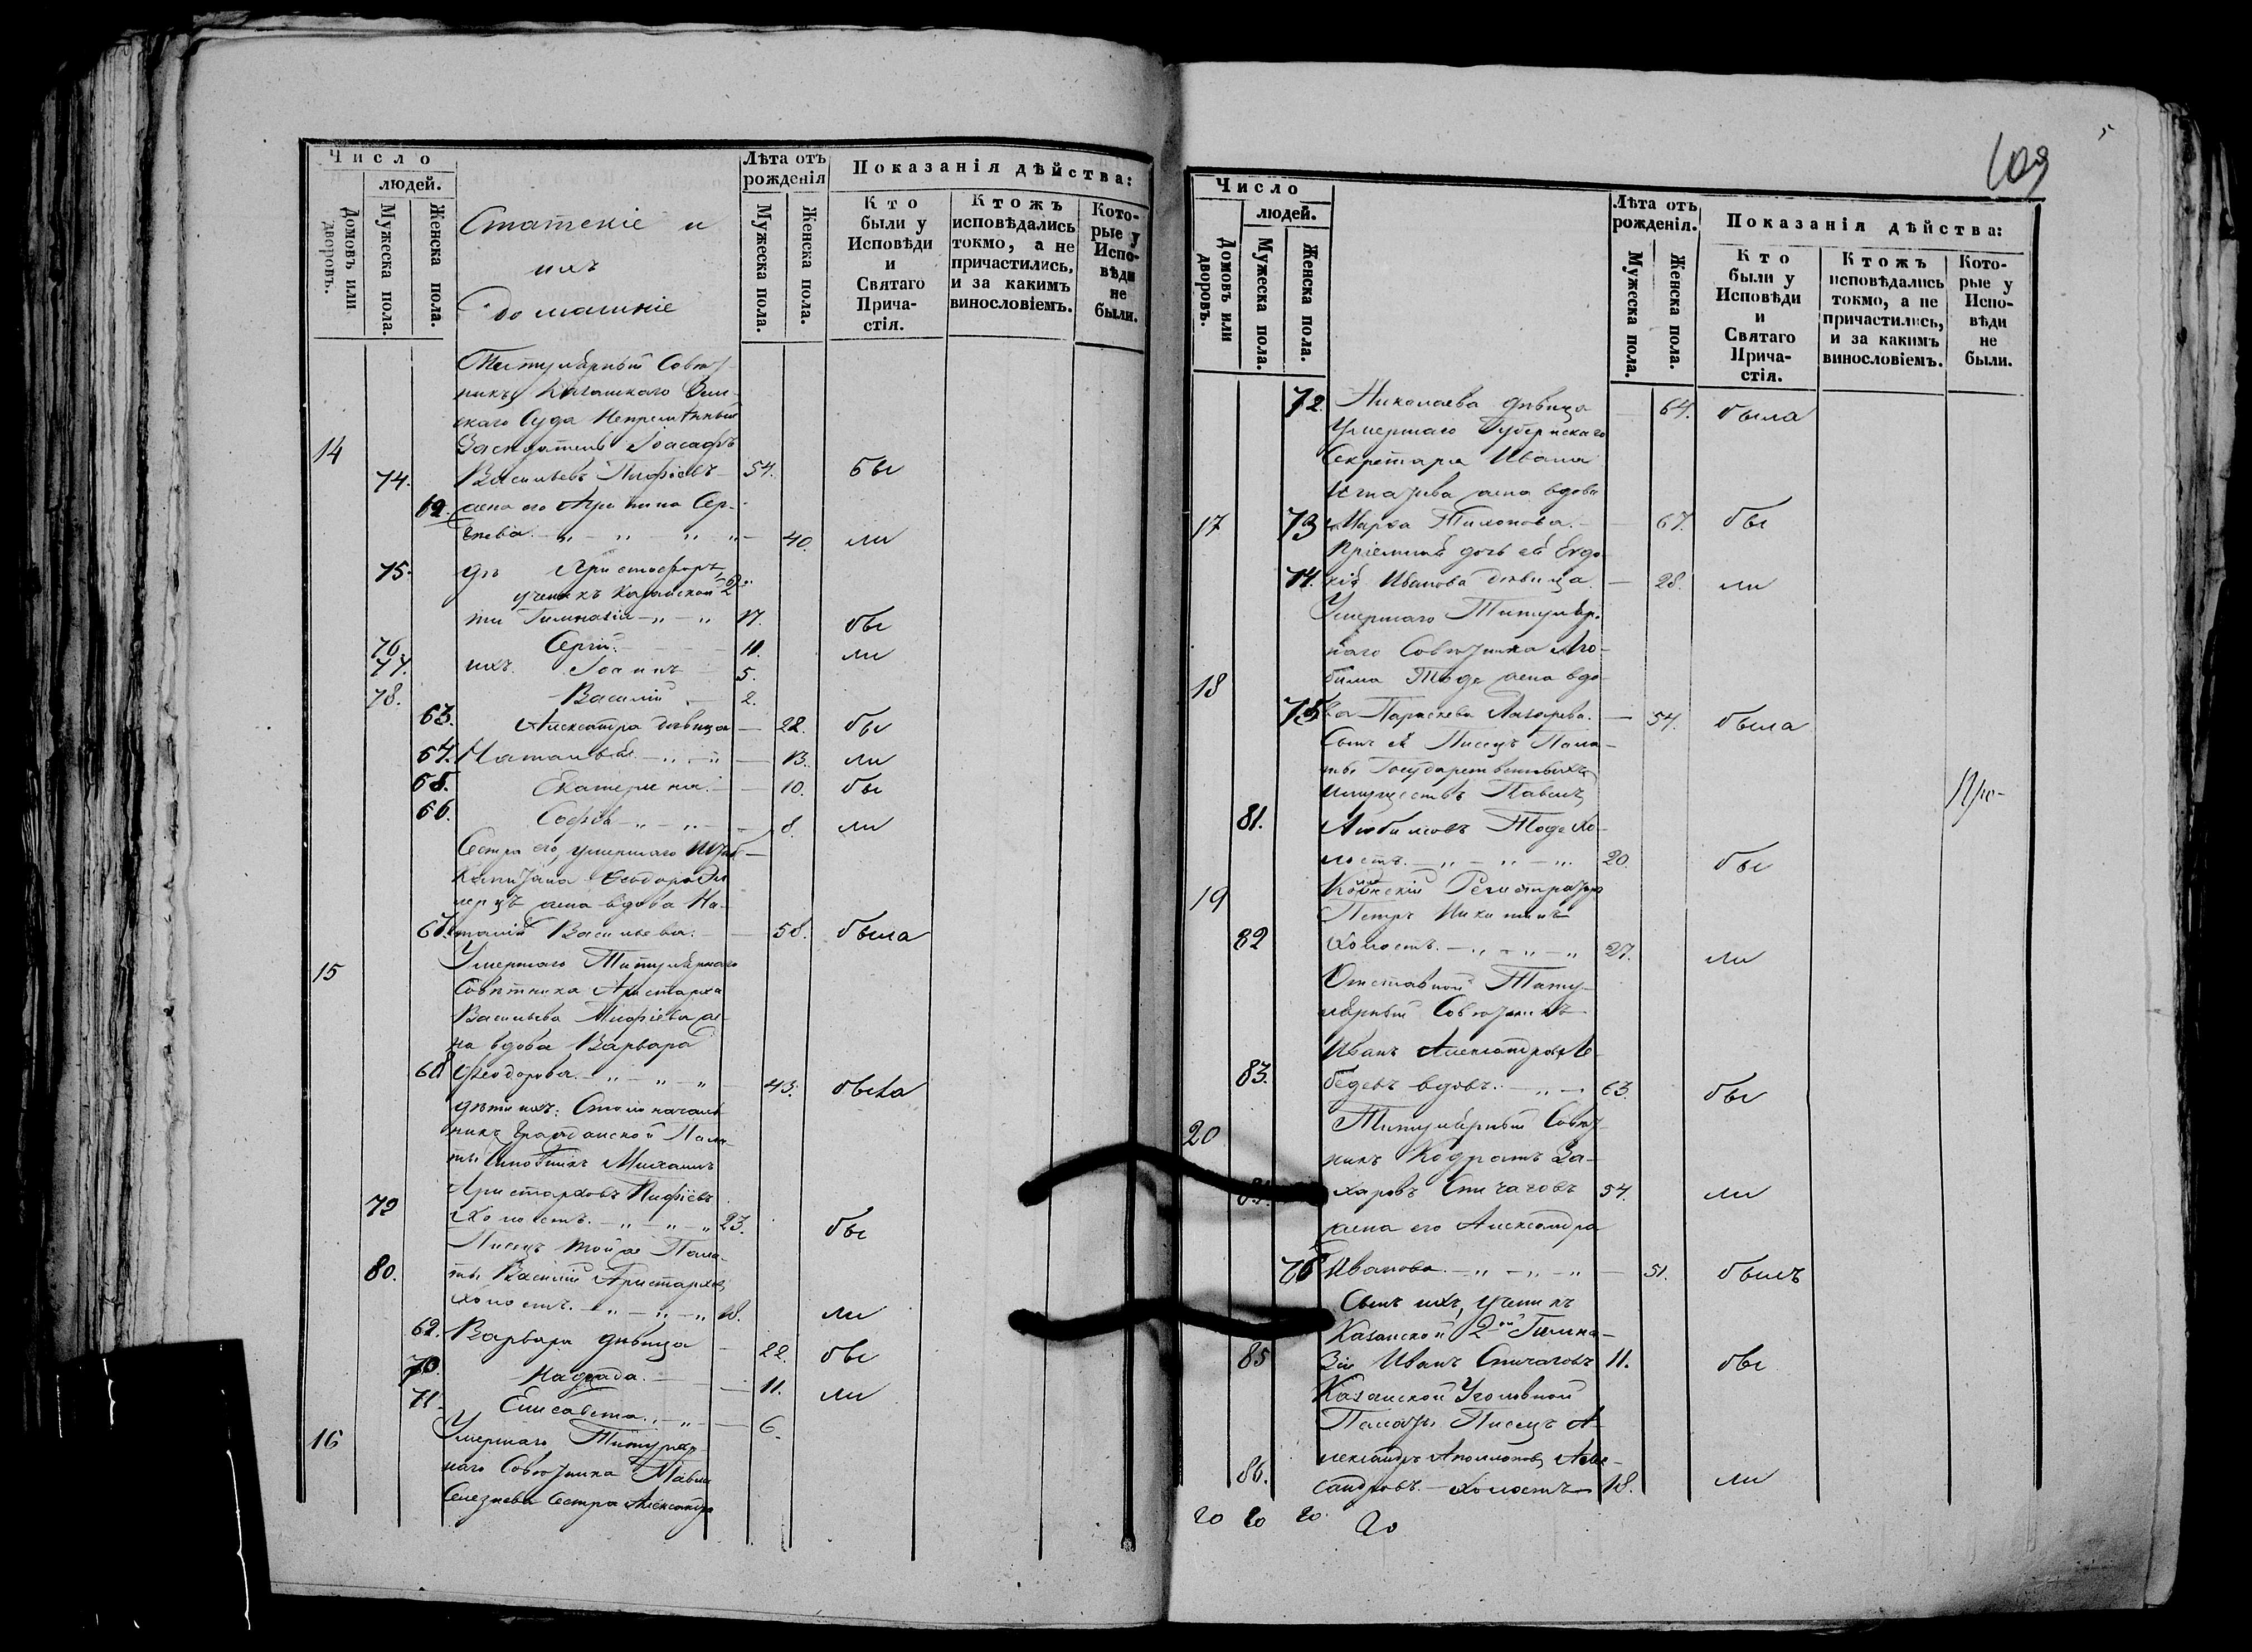 Число
людей.
Домовъ или дворовъ.
Мужеска пола.
Женска пола.
Статскіе и
ихъ
домашніе
Лѣта отъ
рожденія
Мужеска пола.
Женска пола.
Показанія дѣйства:
Кто
были у
Исповѣди
и
Святаго
Прича-
стія.
Ктожъ
исповѣдались
токмо, а не
причастились,
и за какимъ
винословіемъ.
Кото-
рые у
Испо-
вѣди
не
были.
Титулярный Совѣт
никъ Зем-
скаго Суда Непремѣнный
14 Засѣдатель Іоасафъ
74. Васильевъ 54. бы
62. жена его Сер-
гѣева 40. ли
75. дѣ
ученикъ Казанской 2
ти Гимназіи 17. бы
76. Сергій. 11. ли
77. ихъ Іоаннъ 5.
78. Василій 2.
63. Александра дѣвица 22. бы
64. Наталья 13. ли
65. Екатерина 10. бы
66. Софья 8. ли
Сестра его, умершаго Штаб
Капитана Ѳеодора
жена вдова На-
67. талія Васильева. 58. была
15 Умершаго Титулярнаго
Совѣтника Аристарха
Васильева же-
на вдова Варвара
68 Ѳеодорова 43. была
дѣти ихъ: Столоначаль
никъ Гражданской Пала-
ты Михаилъ
Аристарховъ
79 холостъ. 23. бы
Писецъ той же Пала-
80. ты Василій Аристарховъ
холостъ. 18. ли
69. Варвара дѣвица 22. бы
70. Надежда. 11. ли
71. Елисавета 6.
16 Умершаго Титуляр-
наго Совѣтника Павла
Селезнева Сестра Александра
109
Число
людей.
Домовъ или дворовъ.
Мужеска пола.
Женска пола.
Лѣта отъ
рожденія.
Мужеска пола.
Женска пола.
Показанія дѣйства:
Кто
были у
Исповѣди
и
Святаго
Прича-
стія.
Ктожъ
исповѣдались
токмо, а не
причастились,
и за какимъ
винословіемъ.
Кото-
рые у
Испо-
вѣди
не
были.
72. Николаева дѣвица 64. была
Умершаго Губернскаго
Секретаря Ивана
Игнатьева жена вдова
17 73 Марѳа Тихонова. 67. бы
Пріемная дочь ея Евдо-
74. кія Иванова дѣвица 28. ли
Умершаго Титуляр-
наго Совѣтника Лю-
18 бима Тоде жена вдо-
75 ва Параскева Лазарева. 54. была
Сынъ ея Писецъ Пала-
ты Государственныхъ
имуществъ Павелъ
81. Любимовъ Тоде хо-
лостъ. 20. бы
19 Регистраторъ
Петръ Никитинъ
82 холостъ. 27. ли
Отставной Титу-
лярный Совѣтникъ
Иванъ Александровъ Ле-
83. бедевъ вдовъ. 63. бы
20 Титулярный Совѣт
никъ Кодратъ За-
84. харовъ Спичаговъ 54. ли
жена его Александра
76 Иванова 51. былъ
Сынъ ихъ, ученикъ
Казанской 2ой Гимна-
85 зіи Иванъ Спичаговъ 11. бы
Казанской Уголовной
Палаты Писецъ А-
лександръ Аполлоновъ Алек-
86. сандровъ. холостъ 18. ли
20 20 20 20